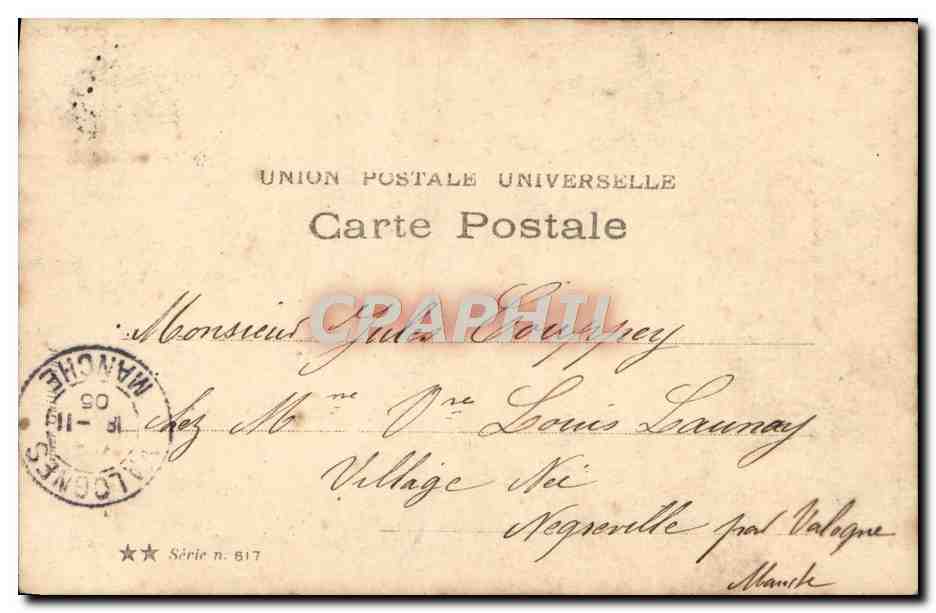 UNION POSTALE UNIVERSELLE
Carte Postale
CPAPHIL
Monsieur Jules Touppey
chez Mme Vve Louis Launay
Village Nei
Negreville par Valogne
Manche
VALOGNES
18 - 11
05
MANCHE
★★ Série n. 617